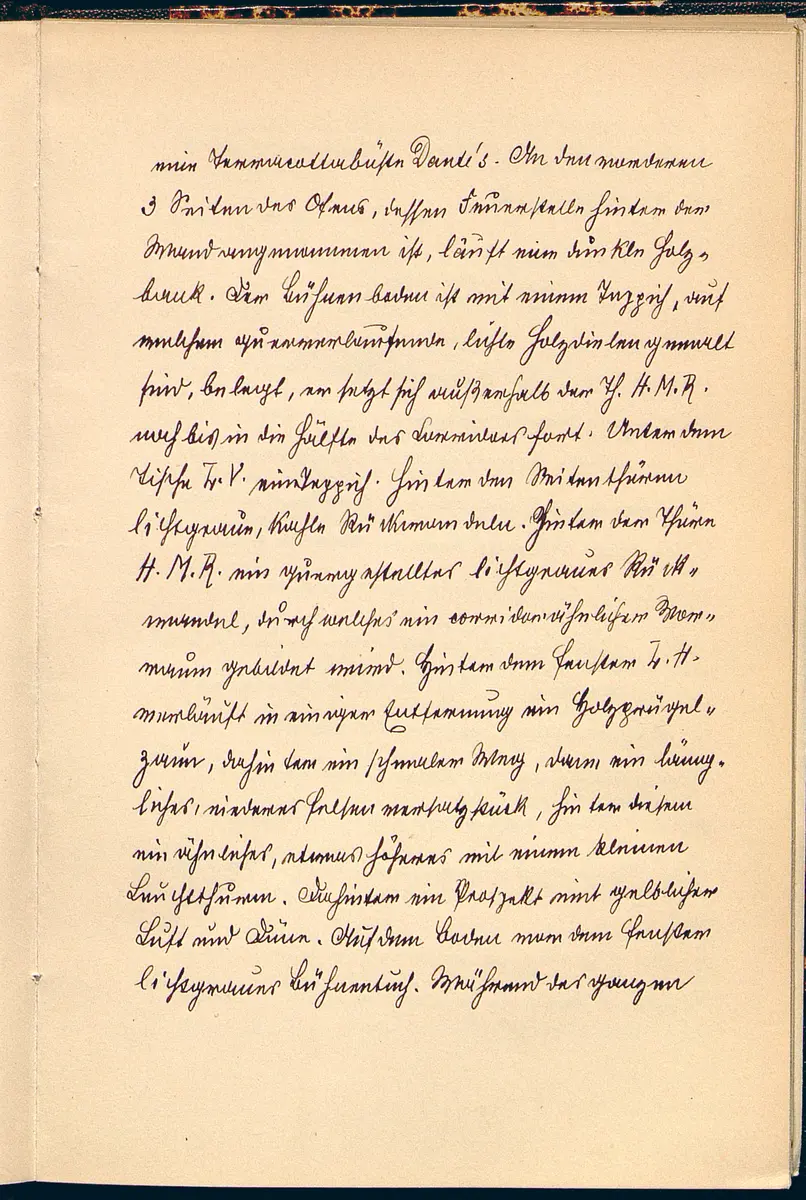 eine Terracottabüste Dante's. An den vorderen
3 Seiten des Ofens, dessen Feuerstelle hinter der
Wand angenommen ist, läuft eine dunkle Holz-
bank. Der Bühnenboden ist mit einem Teppich, auf
welchem querverlaufende, lichte Holzdielen gemalt
sind, belegt, er setzt sich außerhalb der Th. H. M. R.
noch bis in die Hälfte des Corridors fort. Unter dem
Tische L. V. ein Teppich. Hinter den Seitenthüren
lichtgraue, kahle Rückwandeln. Hinter der Thüre
H. M. R. ein quergestelltes lichtgraues Rück-
wandel, durch welches ein corridorähnlicher Vor-
raum gebildet wird. Hinter dem Fenster L. H.
verläuft in einiger Entfernung ein Holzprügel-
zaun, dahinter ein schmaler Weg, dann ein läng-
liches, niederes Felsenversatzstück, hinter diesem
ein ähnliches, etwas höheres mit einem kleinen
Leuchtthurm. Dahinter ein Prospekt mit gelblicher
Luft und Düne. Auf dem Boden vor dem Fenster
lichtgraues Bühnentuch. Während des ganzen